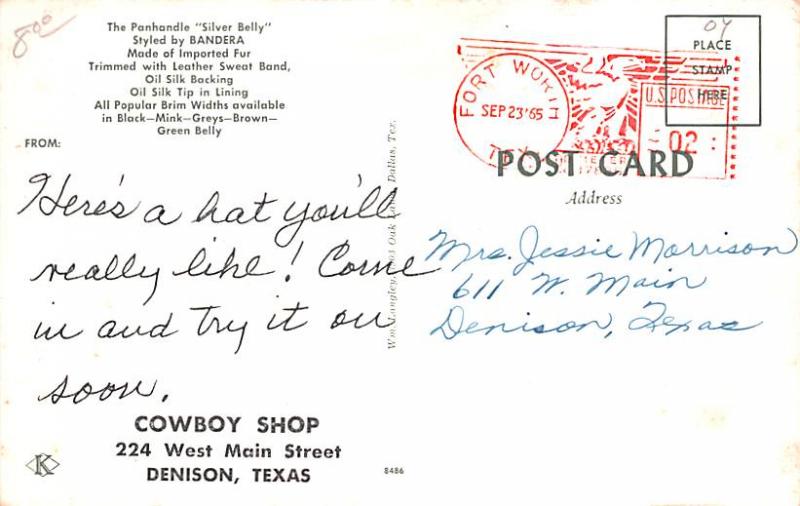 8 00
The Panhandle "Silver Belly"
Styled by BANDERA
Made of Imported Fur
Trimmed with Leather Sweat Band,
Oil Silk Backing
Oil Silk Tip in Lining
All Popular Brim Widths available
in Black—Mink—Greys—Brown—
Green Belly
FROM:
Here's a hat you'll
really like! Come
in and try it on
soon.
COWBOY SHOP
224 West Main Street
DENISON, TEXAS
K
8486
Wm. Langley, Oak Dallas, Tex.
04
PLACE
STAMP
HERE
FORT WORTH
SEP 23 '65
TEX.
U.S. POSTAGE
02
METER
POST CARD
Address
Mrs. Jessie Morrison
611 W. Main
Denison, Texas